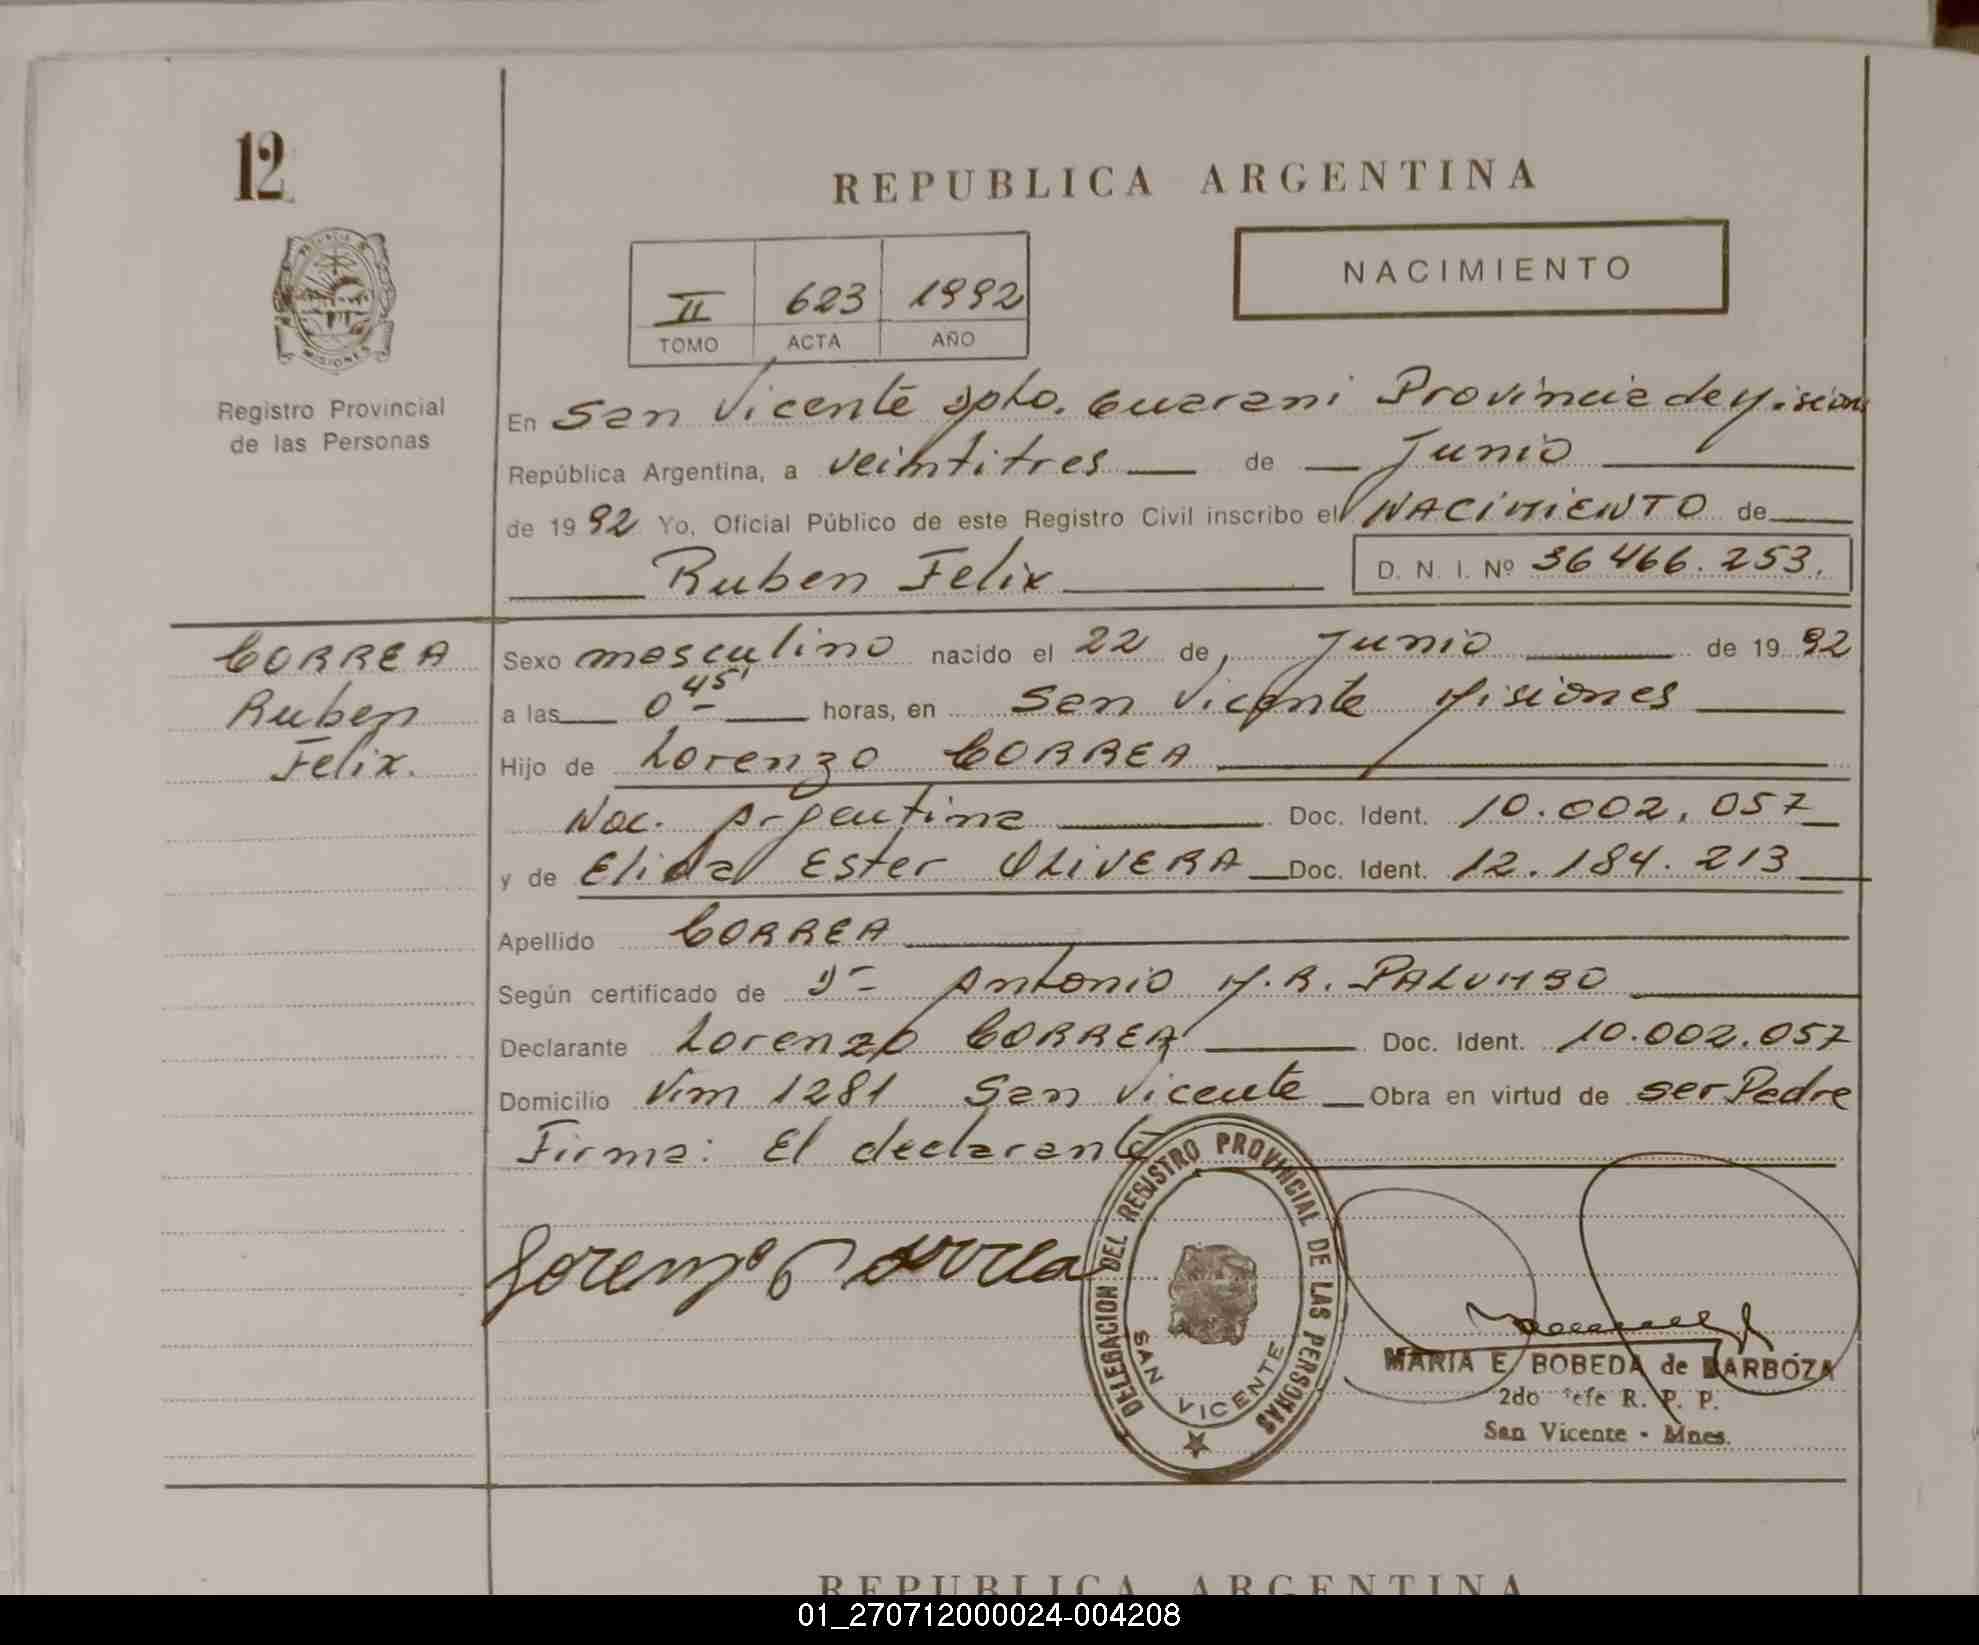 12
REPUBLICA ARGENTINA
NACIMIENTO
II 623 1992
TOMO ACTA AÑO
PROVINCIA DE MISIONES
Registro Provincial
de las Personas
En San Vicente Dpto. Guarani Provincia de Mision
República Argentina, a veintitres de Junio
de 1992 Yo, Oficial Público de este Registro Civil inscribo el NACIMIENTO de
Ruben Felix D. N. I. Nº 36466.253.
CORREA
Ruben
Felix.
Sexo masculino nacido el 22 de Junio de 1992
a las 0 45 horas, en San Vicente Misiones
Hijo de Lorenzo CORREA
Nac. Argentina Doc. Ident. 10.002.057
y de Elida Ester OLIVERA Doc. Ident. 12.184.213
Apellido CORREA
Según certificado de Dr Antonio M.R. PALUMBO
Declarante Lorenzo CORREA Doc. Ident. 10.002.057
Domicilio Viv. 1281 San Vicente Obra en virtud de ser Padre
Firma: El declarante
Lorenzo Correa
DELEGACION DEL REGISTRO PROVINCIAL DE LAS PERSONAS
SAN VICENTE
MARIA E. BOBEDA de BARBOZA
2do Jefe R. P. P.
San Vicente - Mnes.
REPUBLICA ARGENTINA
01_270712000024-004208